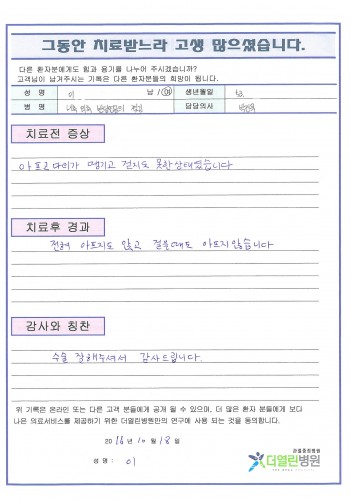 그동안 치료받느라 고생 많으셨습니다.
다른 환자분에게도 힘과 용기를 나누어 주시겠습니까?
고객님이 남겨주시는 기록은 다른 환자분들의 희망이 됩니다.
성 명 이 남 / 여 생년월일
병 명 담당의사
치료전 증상
아프고 다리가 땡기고 걷지도 못한상태였습니다
치료후 경과
전혀 아프지도 않고 걸을때도 아프지않습니다
감사와 칭찬
수술 잘해주셔서 감사드립니다.
위 기록은 온라인 또는 다른 고객 분들에게 공개 될 수 있으며, 더 많은 환자 분들에게 보다
나은 의료서비스를 제공하기 위한 더열린병원만의 연구에 사용 되는 것을 동의합니다.
2016 년 10 월 18 일
성 명 : 이
관절중심병원
더열린병원